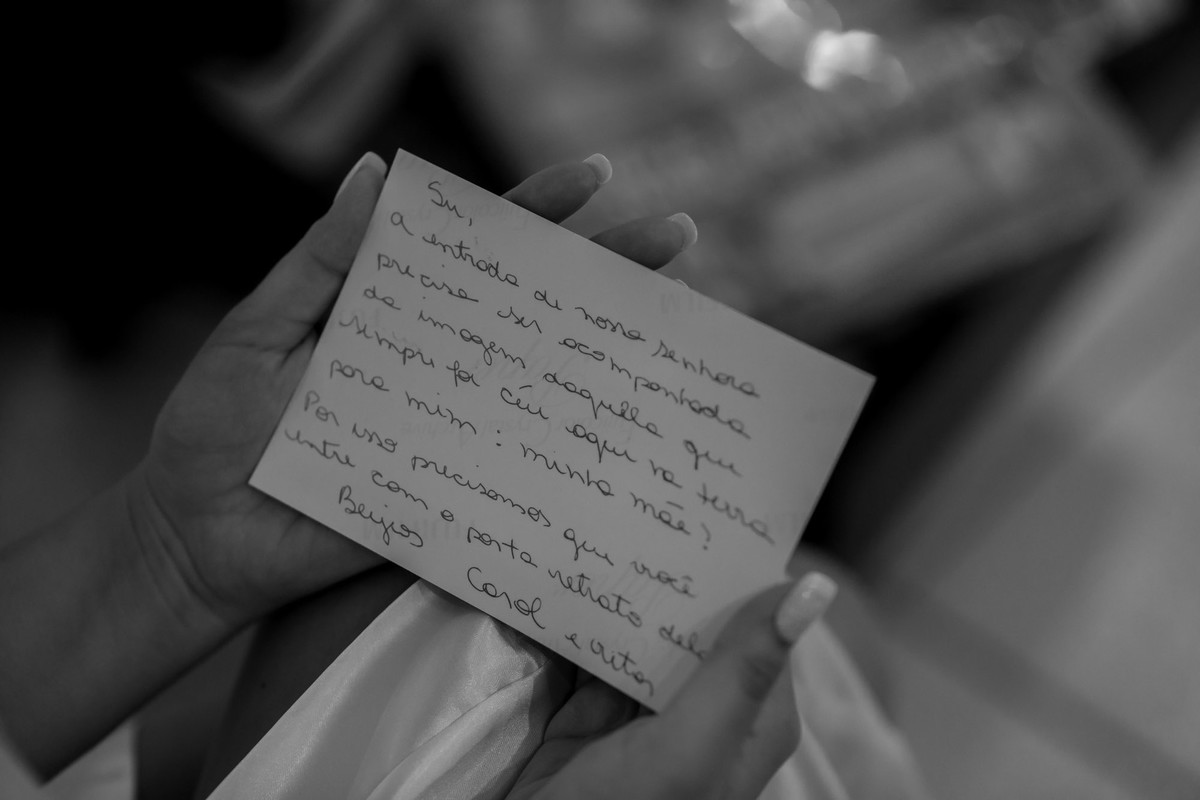 Su,
a entrada de nossa senhora
precisa ser acompanhada
da imagem daquela que
sempre foi céu aqui na terra
para mim: minha mãe?
Por isso precisamos que você
entre com o porta retrato dela
Beijos
Carol e Vitor